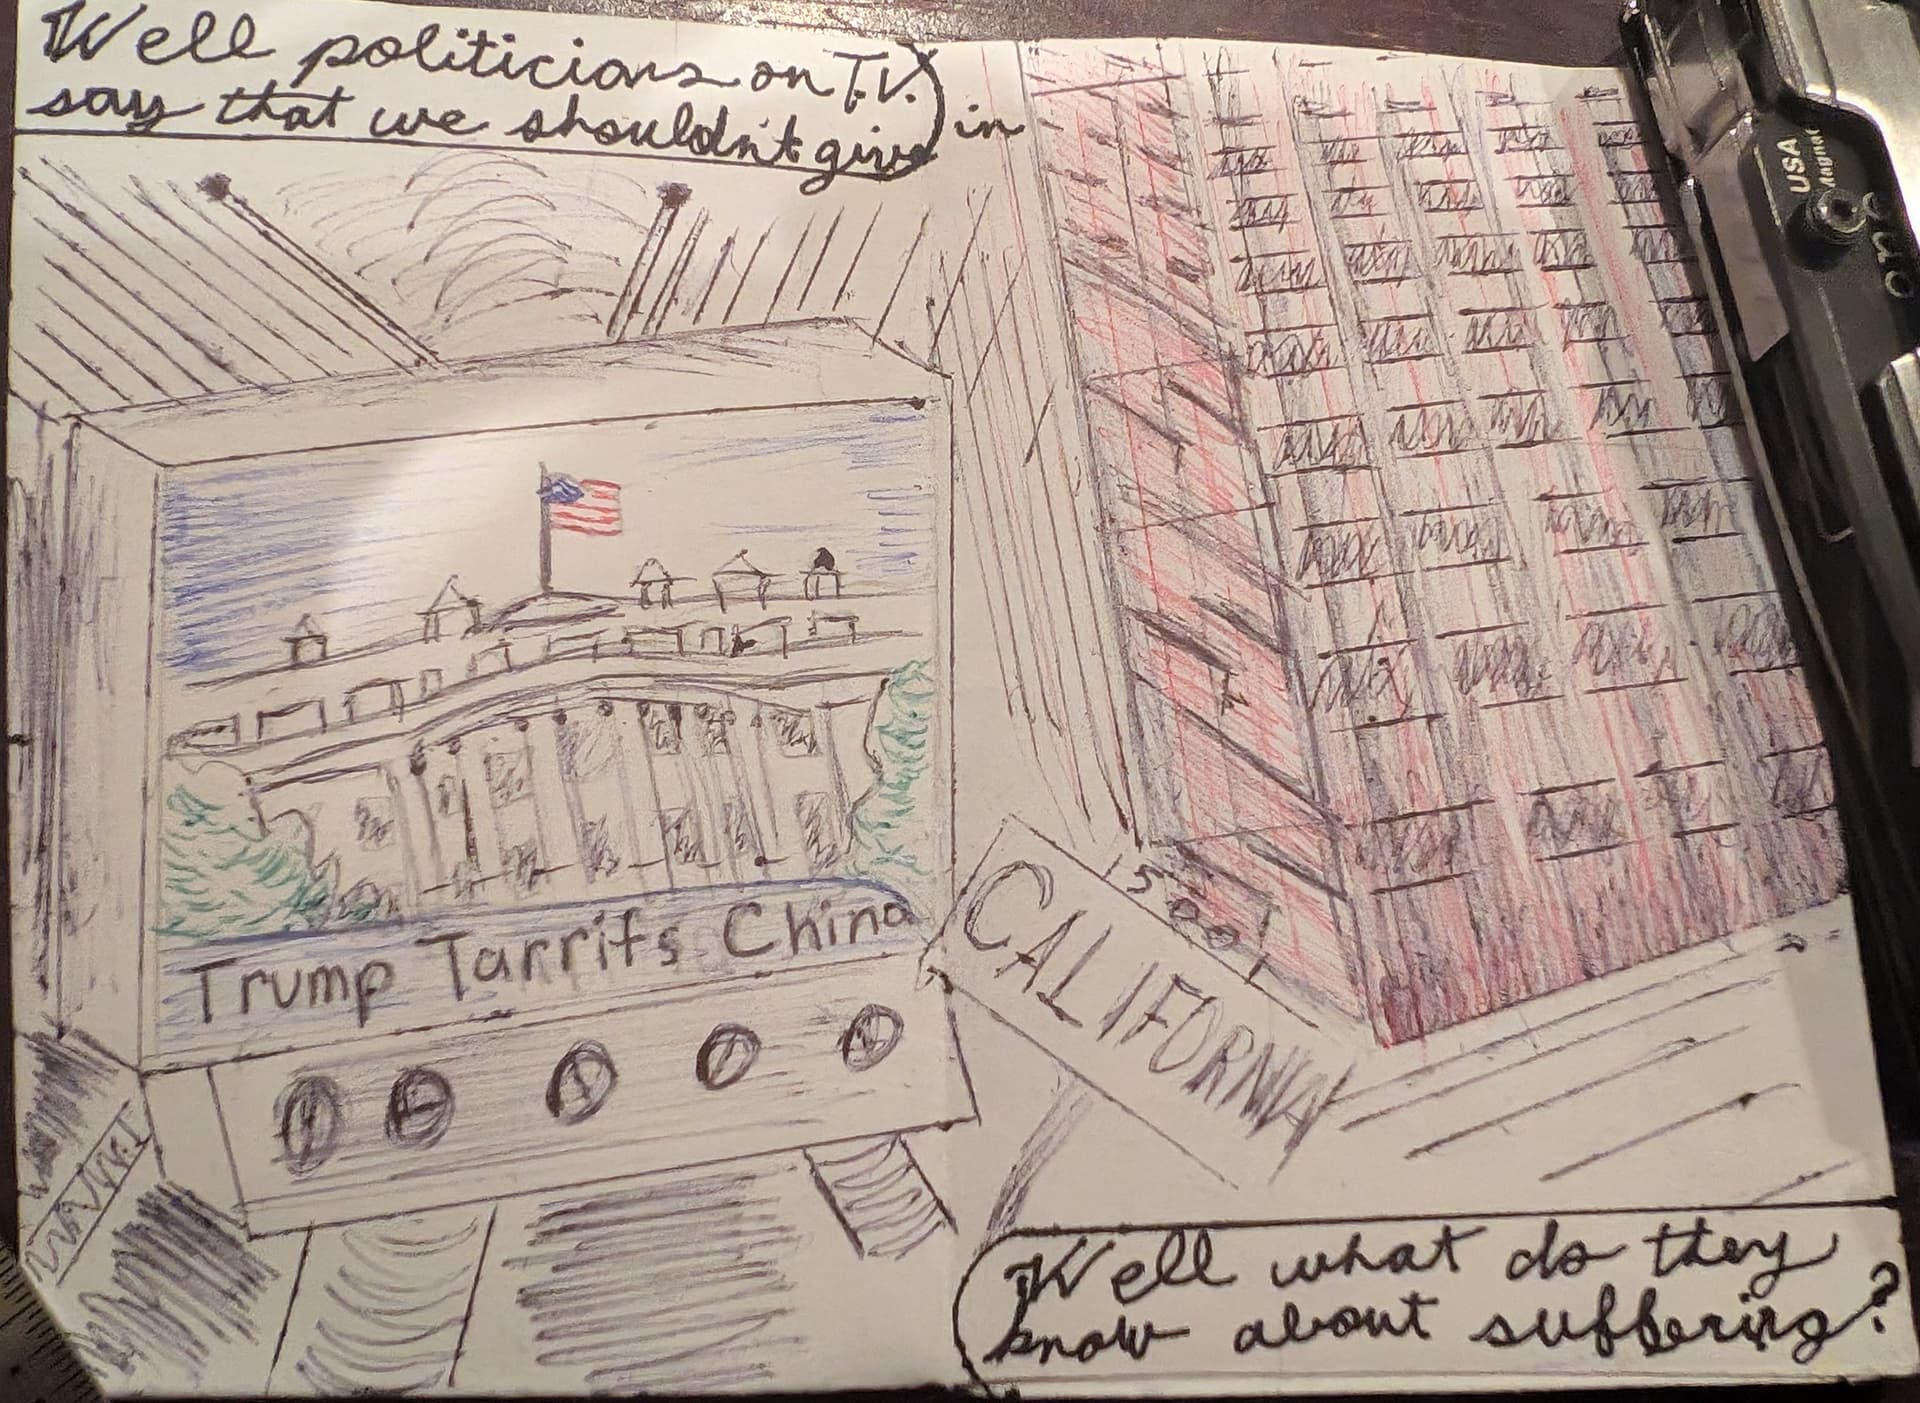 Well politicians on T.V.
say that we shouldn't give in
Trump Tarrifs China
1500
CALIFORNIA
Well what do they
know about suffering?
USA
one